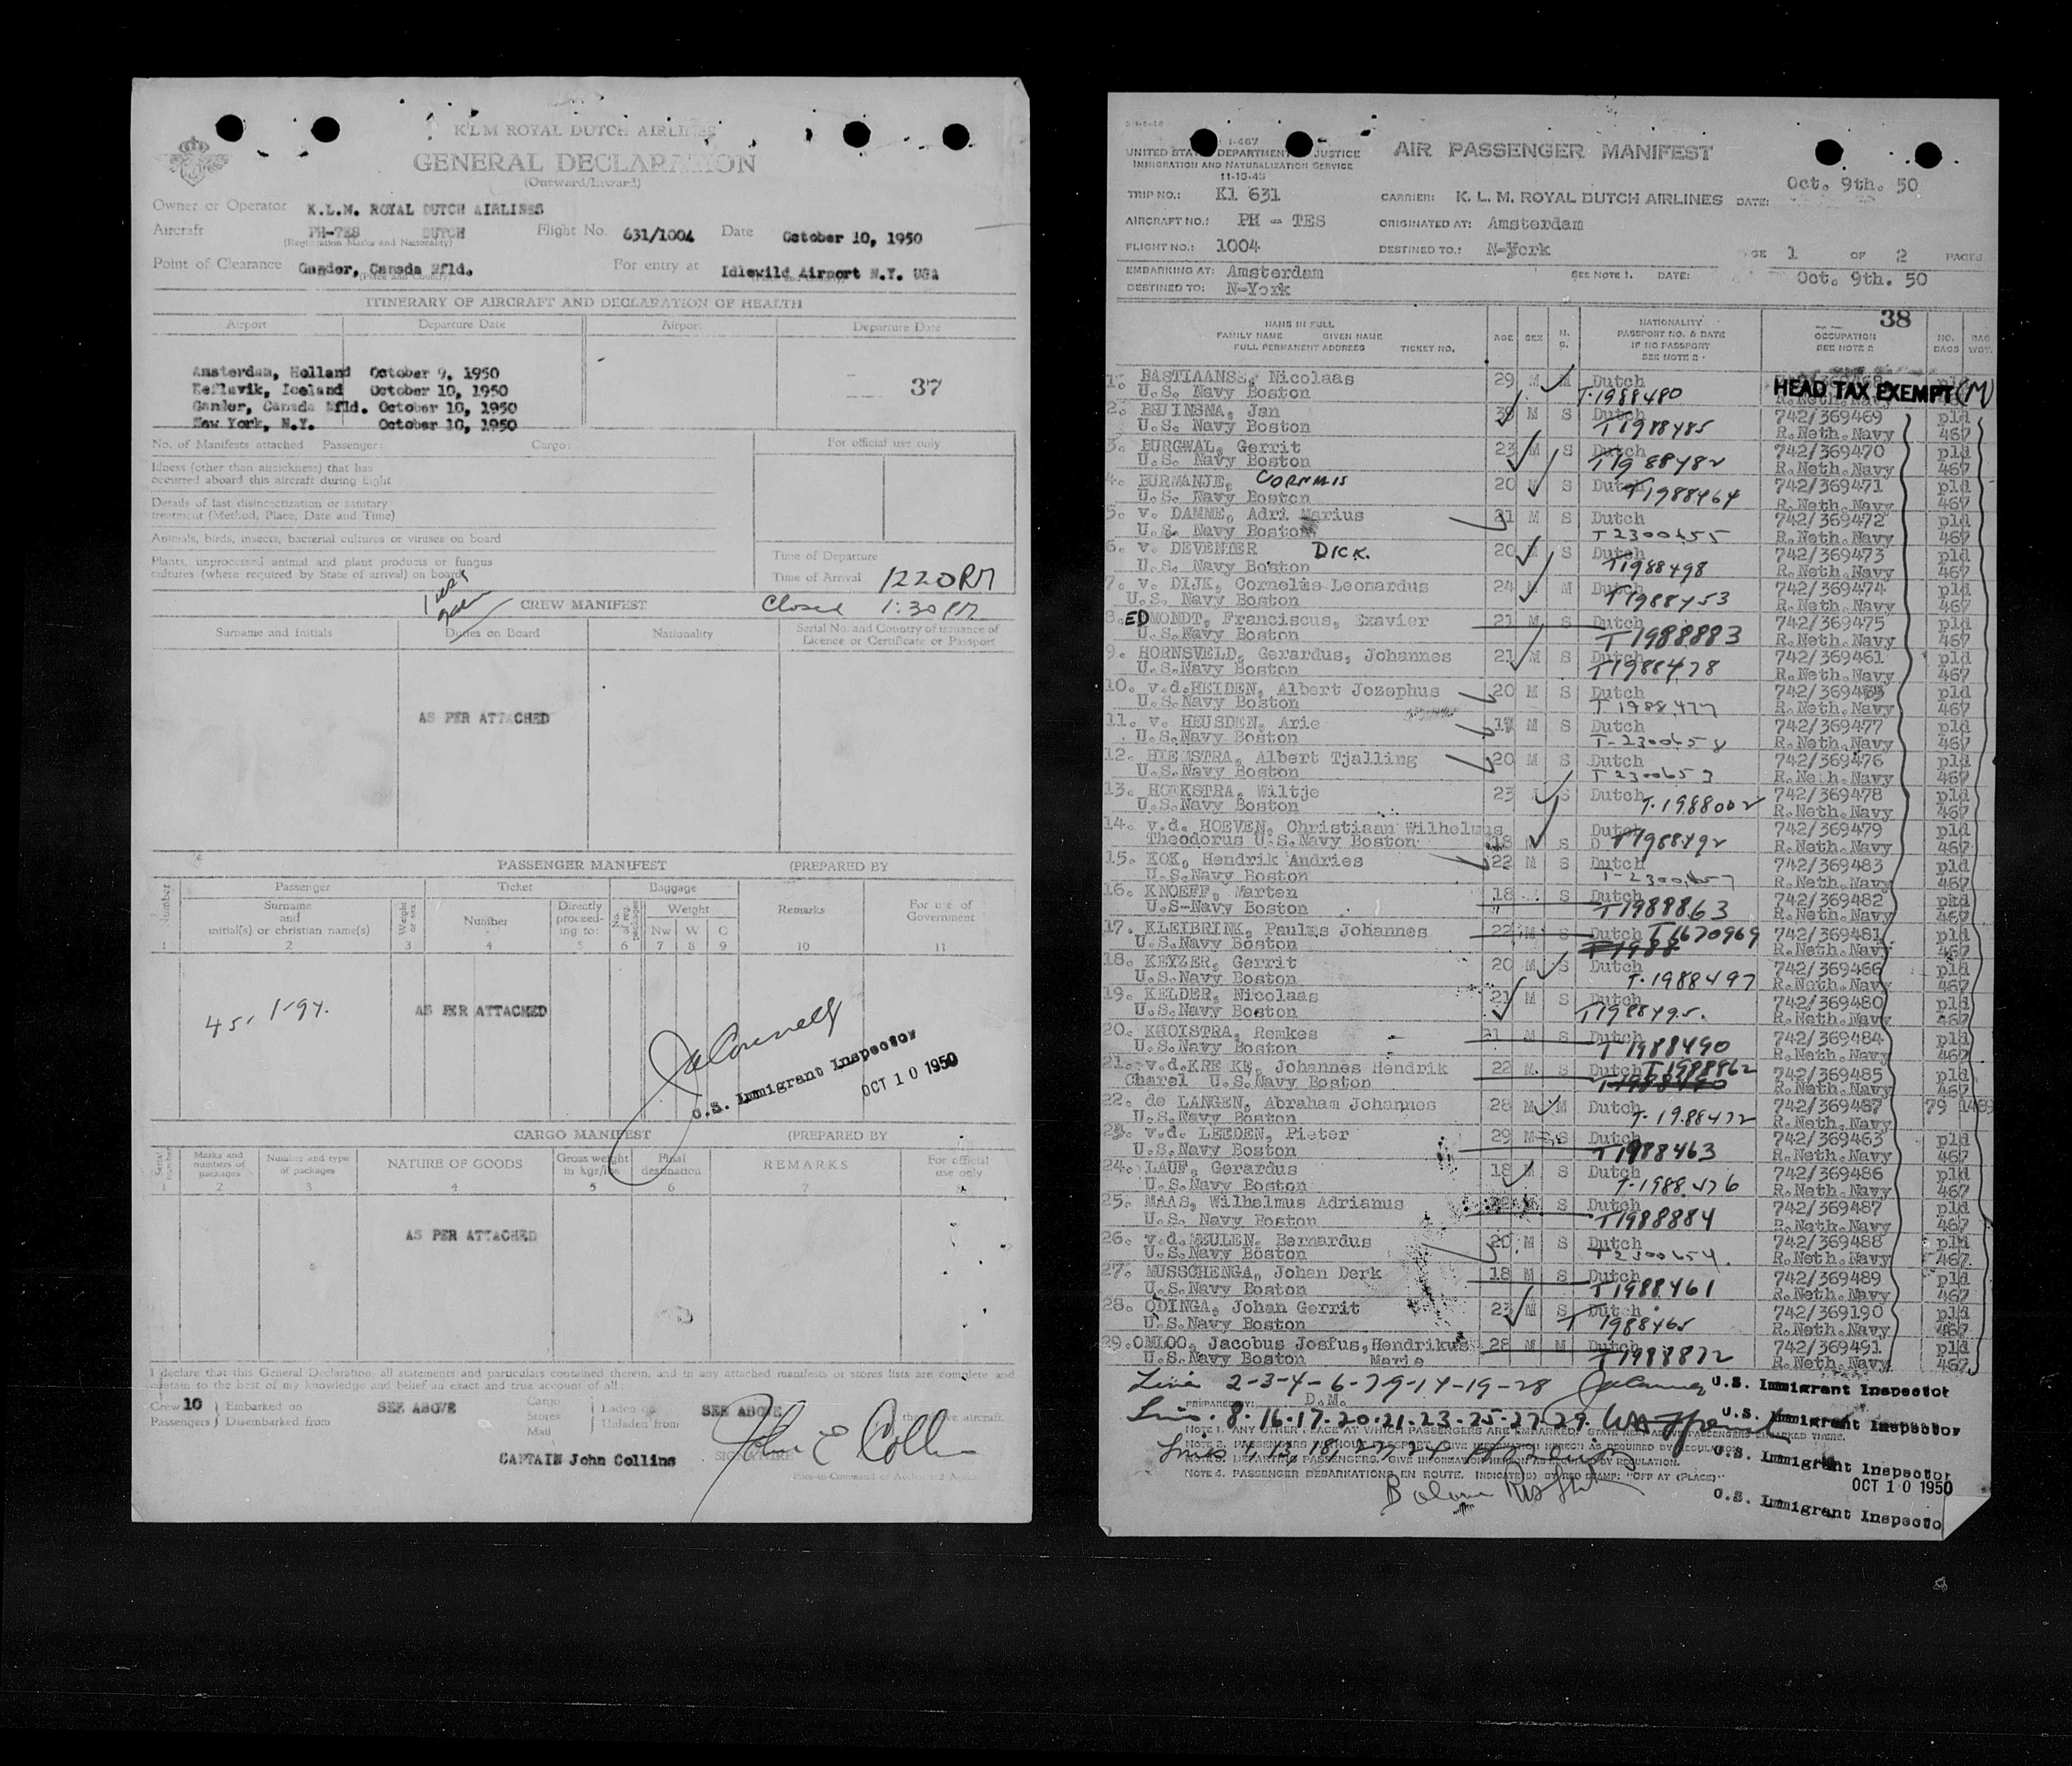 K.L.M. ROYAL DUTCH AIRLINES
GENERAL DECLARATION
(Outward/Inward)
Owner or Operator K.L.M. ROYAL DUTCH AIRLINES
Aircraft PH-TES DUTCH Flight No. 631/1004 Date October 10, 1950
(Registration Marks and Nationality)
Point of Clearance Gander, Canada Nfld. For entry at Idlewild Airport N.Y. USA
(Place and Country)
ITINERARY OF AIRCRAFT AND DECLARATION OF HEALTH
Airport Departure Date Airport Departure Date
Amsterdam, Holland October 9, 1950
Keflavik, Iceland October 10, 1950
37
Gander, Canada Nfld. October 10, 1950
New York, N.Y. October 10, 1950
No. of Manifests attached Passenger: Cargo: For official use only
Illness (other than airsickness) that has
occurred aboard this aircraft during flight
Details of last disinsectization or sanitary
treatment (Method, Place, Date and Time)
Animals, birds, insects, bacterial cultures or viruses on board
Plants, unprocessed animal and plant products or fungus
cultures (where required by State of arrival) on board
Time of Departure
Time of Arrival 1220PM
CREW MANIFEST Closed 1:30 PM
Surname and Initials Duties on Board Nationality Serial No. and Country of issuance of
Licence or Certificate or Passport
AS PER ATTACHED
PASSENGER MANIFEST (PREPARED BY
Number Passenger Ticket Baggage Remarks For use of
Government
Surname
and
initial(s) or christian name(s) Weight or sex Number Directly
proceed-
ing to: No. of reg. packages Weight
Nw W C
1 2 3 4 5 6 7 8 9 10 11
45, 1-94. AS PER ATTACHED
U.S. Immigrant Inspector
OCT 10 1950
CARGO MANIFEST (PREPARED BY
Serial number Marks and
numbers of
packages Number and type
of packages NATURE OF GOODS Gross weight
in kgs/lbs Final
destination REMARKS For official
use only
1 2 3 4 5 6 7 8
AS PER ATTACHED
I declare that this General Declaration, all statements and particulars contained therein, and in any attached manifests or stores lists are complete and
certain to the best of my knowledge and belief an exact and true account of all
Crew 10 Embarked on SEE ABOVE Cargo Laden on SEE ABOVE the above aircraft.
Passengers Disembarked from Stores Unladen from
Mail
John E Collins
CAPTAIN John Collins SIGNATURE
Pilot-in-Command or Authorized Agent
I-467
UNITED STATES DEPARTMENT OF JUSTICE
IMMIGRATION AND NATURALIZATION SERVICE
11-15-45
AIR PASSENGER MANIFEST
Oct. 9th. 50
TRIP NO.: Kl 631 CARRIER: K. L. M. ROYAL DUTCH AIRLINES DATE:
AIRCRAFT NO.: PH - TES ORIGINATED AT: Amsterdam
FLIGHT NO.: 1004 DESTINED TO.: N-York PAGE 1 OF 2 PAGES
EMBARKING AT: Amsterdam SEE NOTE 1. DATE: Oct. 9th. 50
DESTINED TO: N-York
38
NAME IN FULL
FAMILY NAME GIVEN NAME
FULL PERMANENT ADDRESS TICKET NO. AGE SEX M. S. NATIONALITY
PASSPORT NO. & DATE
IF NO PASSPORT
SEE NOTE 2 OCCUPATION
SEE NOTE 2 NO.
BAGS BAG
WGT.
1. BASTIAANSE, Nicolaas 29 M M Dutch HEAD TAX EXEMPT (M)
U.S. Navy Boston T-1988480 R.Neth.Navy
2. BRUINSMA, Jan M S Dutch 742/369469 pld
U.S. Navy Boston T1988485 R.Neth.Navy 467
3. BURGWAL, Gerrit 23 M S Dutch 742/369470 pld
U.S. Navy Boston T1988482 R.Neth.Navy 467
4. BURMANJE, CORNELIS 20 M S Dutch 742/369471 pld
U.S. Navy Boston T1988464 R.Neth.Navy 467
5. v. DAMME, Adri Marius 21 M S Dutch 742/369472 pld
U.S. Navy Boston T2300655 R.Neth.Navy 467
6. v. DEVENTER DICK. 20 M S Dutch 742/369473 pld
U.S. Navy Boston T1988498 R.Neth.Navy 467
7. v. DIJK, Cornelis Leonardus 24 M M Dutch 742/369474 pld
U.S. Navy Boston T1988453 R.Neth.Navy 467
8. EDMONDT, Franciscus, Exavier 21 M S Dutch 742/369475 pld
U.S.Navy Boston T1988883 R.Neth.Navy 467
9. HORNSVELD, Gerardus, Johannes 21 M S Dutch 742/369461 pld
U.S.Navy Boston T1988478 R.Neth.Navy 467
10. v.d.HEIDEN, Albert Jozephus 20 M S Dutch pld
U.S.Navy Boston T1988477 R.Neth.Navy 467
11. v. HEUSDEN, Arie M S Dutch 742/369477 pld
U.S.Navy Boston T-2300658 R.Neth.Navy 467
12. HIEMSTRA, Albert Tjalling 20 M S Dutch 742/369476 pld
U.S.Navy Boston T2300653 R.Neth.Navy 467
13. HOEKSTRA, Wiltje 23 S Dutch 742/369478 pld
U.S.Navy Boston T-1988002 R.Neth.Navy 467
14. v.d. HOEVEN, Christiaan Wilhelmus Dutch 742/369479 pld
Theodorus U.S.Navy Boston 18 M S T1988492 R.Neth.Navy 467
15. KOK, Hendrik Andries 22 M S Dutch 742/369483 pld
U.S.Navy Boston T-2300657 R.Neth.Navy 467
16. KNOEFF, Marten 18 S Dutch 742/369482 pld
U.S-Navy Boston T1988863 R.Neth.Navy 467
17. KLEIBRINK, Paulus Johannes 22 M S Dutch T1670969 742/369481 pld
U.S.Navy Boston T1988 R.Neth.Navy 467
18. KEYZER, Gerrit 20 M S Dutch 742/369466 pld
U.S.Navy Boston T-1988497 R.Neth.Navy 467
19. KELDER, Nicolaas 21 M S Dutch 742/369480 pld
U.S.Navy Boston T1988495. R.Neth.Navy 467
20. KOOISTRA, Remkes 21 M S Dutch 742/369484 pld
U.S.Navy Boston T1988490 R.Neth.Navy 467
21. v.d.KREEKE, Johannes Hendrik 22 M S Dutch T1988862 742/369485 pld
Charel U.S.Navy Boston T1988490 R.Neth.Navy 467
22. de LANGEN, Abraham Johannes 28 M M Dutch 742/369487 79 1489
U.S.Navy Boston T-1988472 R.Neth.Navy
23. v.d. LEEDEN, Pieter 29 M S Dutch 742/369463 pld
U.S.Navy Boston T1988463 R.Neth.Navy 467
24. LAUF, Gerardus 18 M S Dutch 742/369486 pld
U.S.Navy Boston T-1988476 R.Neth.Navy 467
25. MAAS, Wilhelmus Adrianus S Dutch 742/369487 pld
U.S. Navy Boston T1988884 R.Neth.Navy 467
26. v.d.MEULEN, Bernardus 20 M S Dutch 742/369488 pld
U.S.Navy Boston T2300654. R.Neth.Navy 467
27. MUSSCHENGA, Johan Derk 18 M S Dutch 742/369489 pld
U.S.Navy Boston T1988461 R.Neth.Navy 467
28. ODINGA, Johan Gerrit 23 M S Dutch 742/369190 pld
U.S.Navy Boston T1988465 R.Neth.Navy 467
29. OMLOO, Jacobus Josfus, Hendrikus 28 M M Dutch 742/369491 pld
U.S.Navy Boston Marie T1988872 R.Neth.Navy 467
Line 2-3-4-6-7-9-14-19-28 U.S. Immigrant Inspector
PREPARED BY: D.M.
Lines. 8.16.17.20.21.23.25.27.29. U.S. Immigrant Inspector
NOTE 1. ANY OTHER PLACE AT WHICH PASSENGERS ARE EMBARKED. STATE NEXT ABOVE PASSENGERS EMBARKED THERE.
NOTE 2. PASSENGERS WITHOUT PASSPORT, GIVE INFORMATION HEREON AS REQUIRED BY REGULATION.
Lines 1, 13, 18, 22, 24
U.S. Immigrant Inspector
NOTE 3. DEPARTING PASSENGERS. GIVE INFORMATION HEREON AS REQUIRED BY REGULATION.
NOTE 4. PASSENGER DEBARKATIONS EN ROUTE. INDICATE(D) BY RED STAMP: "OFF AT (PLACE)"
OCT 10 1950
Balance
U.S. Immigrant Inspecto